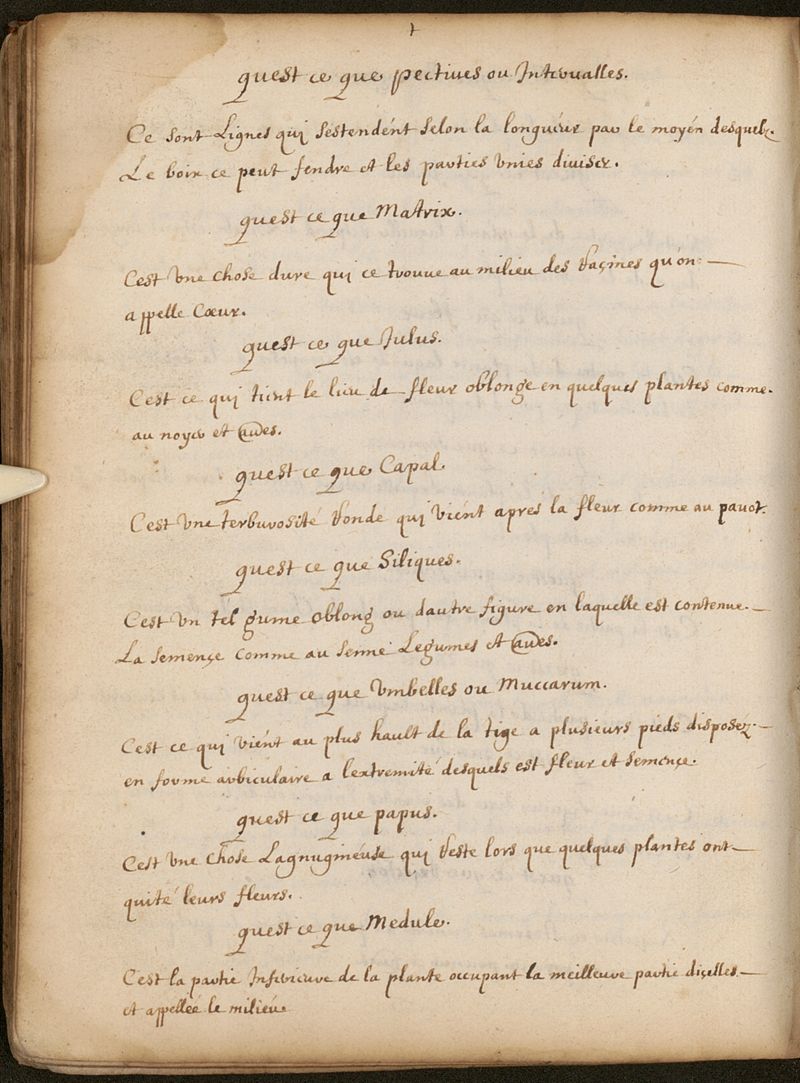 quest ce que pectiues ou Interualles.
Ce sont Lignes qui sestendént selon la longueur par le moyén desquelz.
Le boix ce peut fendre et les parties vnies diuiser.
quest ce que Matrix.
Cest vne chose dure qui ce trouue au milieu des raçines qu'on
appelle Cœur.
quest ce que Julus.
Cest ce qui tient le lieu de fleur oblonge en quelques plantes comme.
au noyer et autres.
quest ce que Capal
Cest vne terburosité ronde qui viént apres la fleur comme au pauot.
quest ce que Siliques.
Cest vn tel gume oblong ou dautre figure en laquelle est contenue.
La semençe comme au senne Legumes et autres.
quest ce que vmbelles ou Muccarum.
Cest ce qui vient au plus hault de la tige a plusieurs pieds disposez.
en forme arbiculaire a lextremité desquels est fleur et semençe.
quest ce que papus.
Cest vne chose Lagnugineuse qui reste lors que quelques plantes ont
quité leurs fleurs.
quest ce que Medule.
Cest la partie Inferieure de la plante occupant la meilleure partie diçelles
et appellée le milieu.